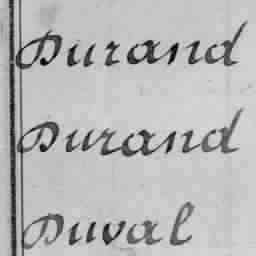 Durand
Durand
Duval